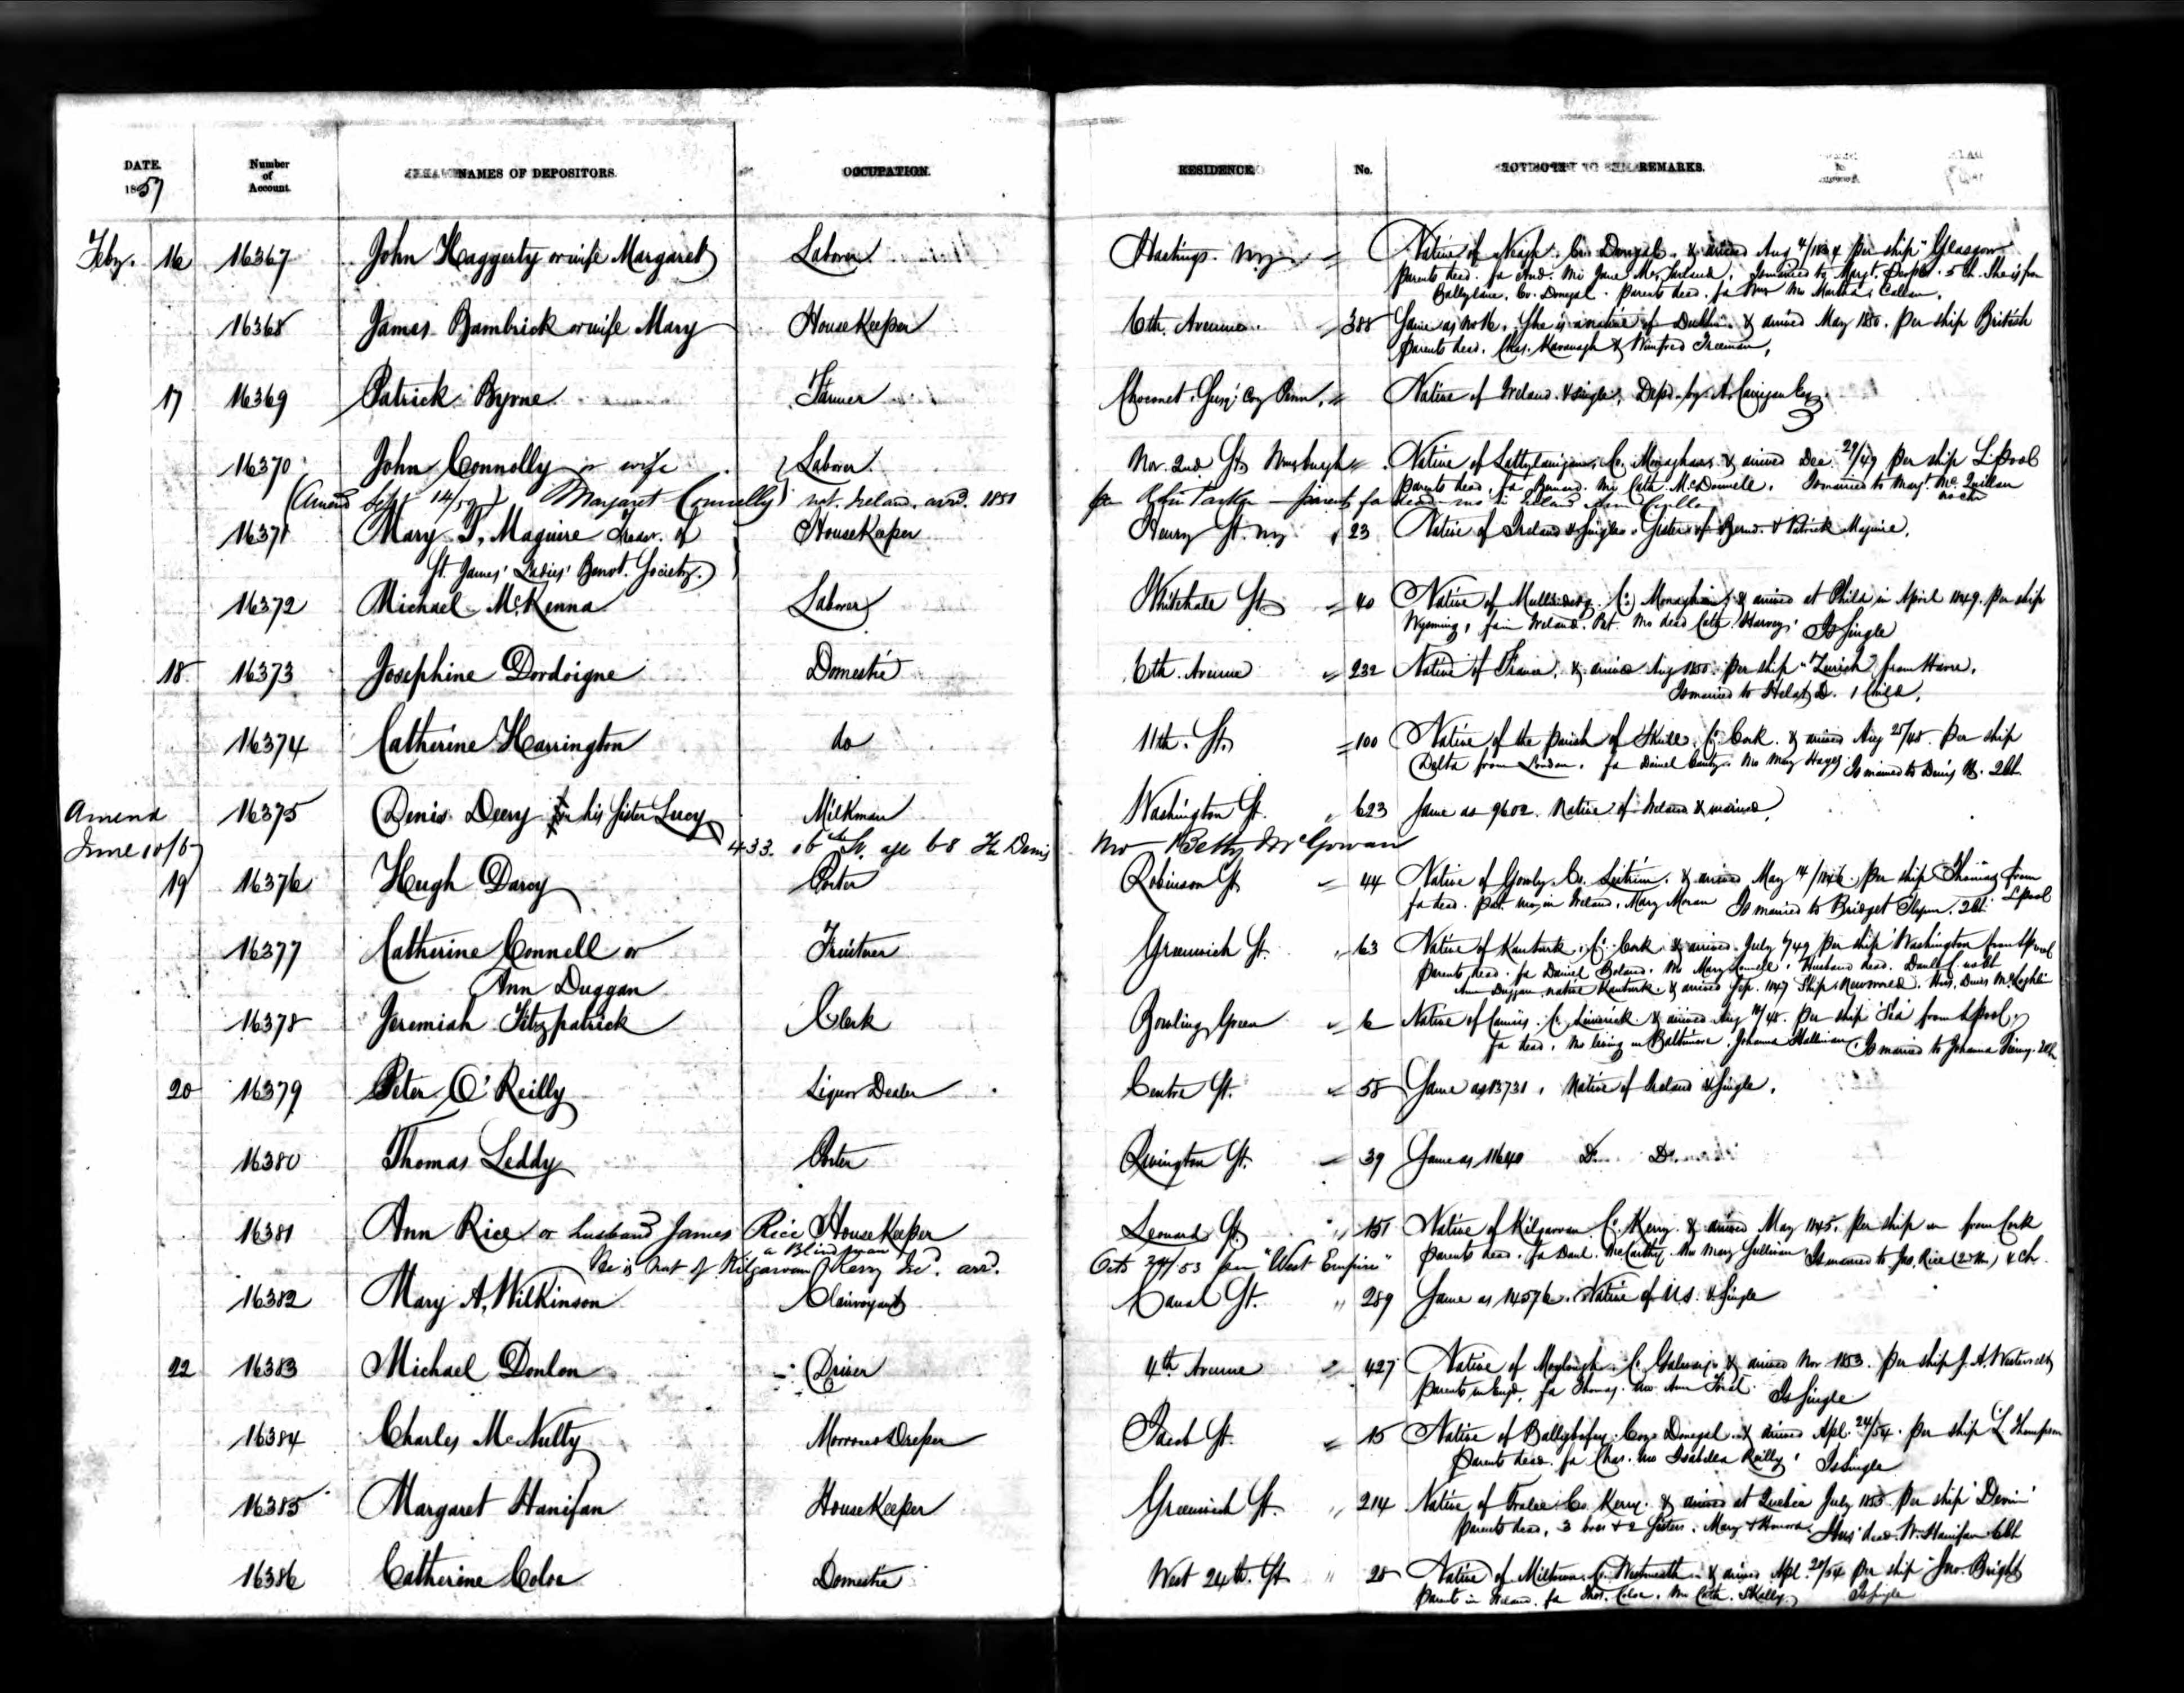 DATE. Number of Account. NAMES OF DEPOSITORS. OCCUPATION. RESIDENCE No. REMARKS.
1857
Feby. 16 16367 John Haggerty or wife Margaret Laborer Hastings N.Y. Native of Co. Donegal & arrived Aug per ship "Glasgow
parents dead. fa And. Mo Jane McFarland. Is married to Margt. 5 ch. She is from
Co. Donegal. parents dead. fa Mo Martha
16368 James Bambrick or wife Mary HouseKeeper 6th. Avenue 388 Same as She is a native of Dublin. & arrived May 1850. per ship British
parents dead. Chas. Kavanagh & Winifred Freeman.
17 16369 Patrick Byrne Farmer Choconut. Susq. Coy Penn. Native of Ireland & single. Depd. by A. Carrigan Esq.
16370 John Connolly or wife Laborer Nor. 2nd St. Wmsburgh Native of Co. Monaghan & arrived Dec. 29/49 per ship L.pool
parents dead. fa Bernard. Mo Cath. McDonnell. Is married to Margt. McQuillan
no ch
(Amend Sept 14/59) Margaret Connolly) nat. Ireland. arrd. 1851 per parents fa dead mo in Ireland Ann
16371 Mary T. Maguire Treasr. of HouseKeeper Henry St. NY 23 Native of Ireland & Single. Sister of Bernd. & Patrick Maguire.
St. James' Ladies' Benvt. Society.
16372 Michael McKenna Laborer Whitehale St. 40 Native of Co. Monaghan & arrived at Phila in April 1849. per ship
Wyoming, fa in Ireland. Pat. Mo dead Cath. Harvey. Is Single
18 16373 Josephine Dordoigne Domestic 6th. Avenue 232 Native of France. & arrived Aug 1850. per ship "Zurich" from Havre.
Is married to D. 1 Child.
16374 Catherine Harrington do 11th. St. 100 Native of the parish of Skull Co. Cork. & arrived Aug 25/48. per ship
Delta from London. fa Daniel Mo Mary Hayes Is married to Denis H. 2 Ch.
Amend 16375 Denis Deery his Sister Lucy Milkman Washington St. 623 Same as 9602. Native of Ireland & married.
June 10/ 433. 16th St. age 68 Fa Denis Mo Betty McGowan
19 16376 Hugh Darcy Porter Robinson St. 44 Native of Co. Leitrim. & arrived May 14/1846. per ship Thomas from
L.pool
fa dead. Pat. Mo in Ireland. Mary Moran Is married to Bridget Flynn. 2 Ch.
16377 Catherine Connell or Fruiterer Greenwich St. 63 Native of Kanturk. Co. Cork & arrived July /49 per ship Washington from L.pool
parents dead. fa Daniel Boland. Mo Mary Connell. Husband dead. Danl. C. no Ch
Ann Duggan Ann Duggan, native Kanturk. & arrived Sep. 1847 Ship New world. Hus. Denis
16378 Jeremiah Fitzpatrick Clerk Bowling Green 6 Native of Co. Limerick. & arrived Aug /48. per ship from L.pool.
fa dead. Mo living in Baltimore. Johanna Hallinan. Is married to Johanna
20 16379 Peter O'Reilly Liquor Dealer Centre St. 58 Same as 13731. Native of Ireland & Single.
16380 Thomas Leddy Porter Rivington St. 39 Same as 11640 Do. Do.
16381 Ann Rice or husband James Rice HouseKeeper Leonard St. 151 Native of Kilgarvan Co. Kerry. & arrived May 1845. per ship from Cork
a Blind man
He is Nat of Kilgarvan Kerry Ire. arrd. Octo 24/53 per "West Empire" parents dead. fa Danl. McCarthy. Mo Mary Sullivan Is married to Jas. Rice 4 Ch.
16382 Mary A. Wilkinson Clairvoyant Canal St. 289 Same as 14576. Native of U.S. & Single
22 16383 Michael Donlon Driver 4th. Avenue 427 Native of Moylough. Co. Galway. & arrived Nov. 1853. per ship J. A. Westervelt
parents in Engd. fa Thomas. Mo Ann Is Single
16384 Charles McNulty Jacob St. 15 Native of Ballybofey. Coy Donegal. & arrived Apl. 24/54. per ship L. Thompson
parents dead. fa Chas. Mo Isabella Reilly. Is Single
16385 Margaret Hanifan HouseKeeper Greenwich St. 214 Native of Tralee Co. Kerry. & arrived at Quebec July 1853. per ship
parents dead. 3 bros & 2 Sisters. Mary & Honora. Hus. dead. W. Hanifan 6 Ch
16386 Catherine Coloe Domestic West 24th. St. 28 Native of Miltown. Co. Westmeath & arrived Apl. /54 per ship Jno. Bright
parents in Ireland. fa Thos. Coloe. Mo Cath. Skally. Is Single